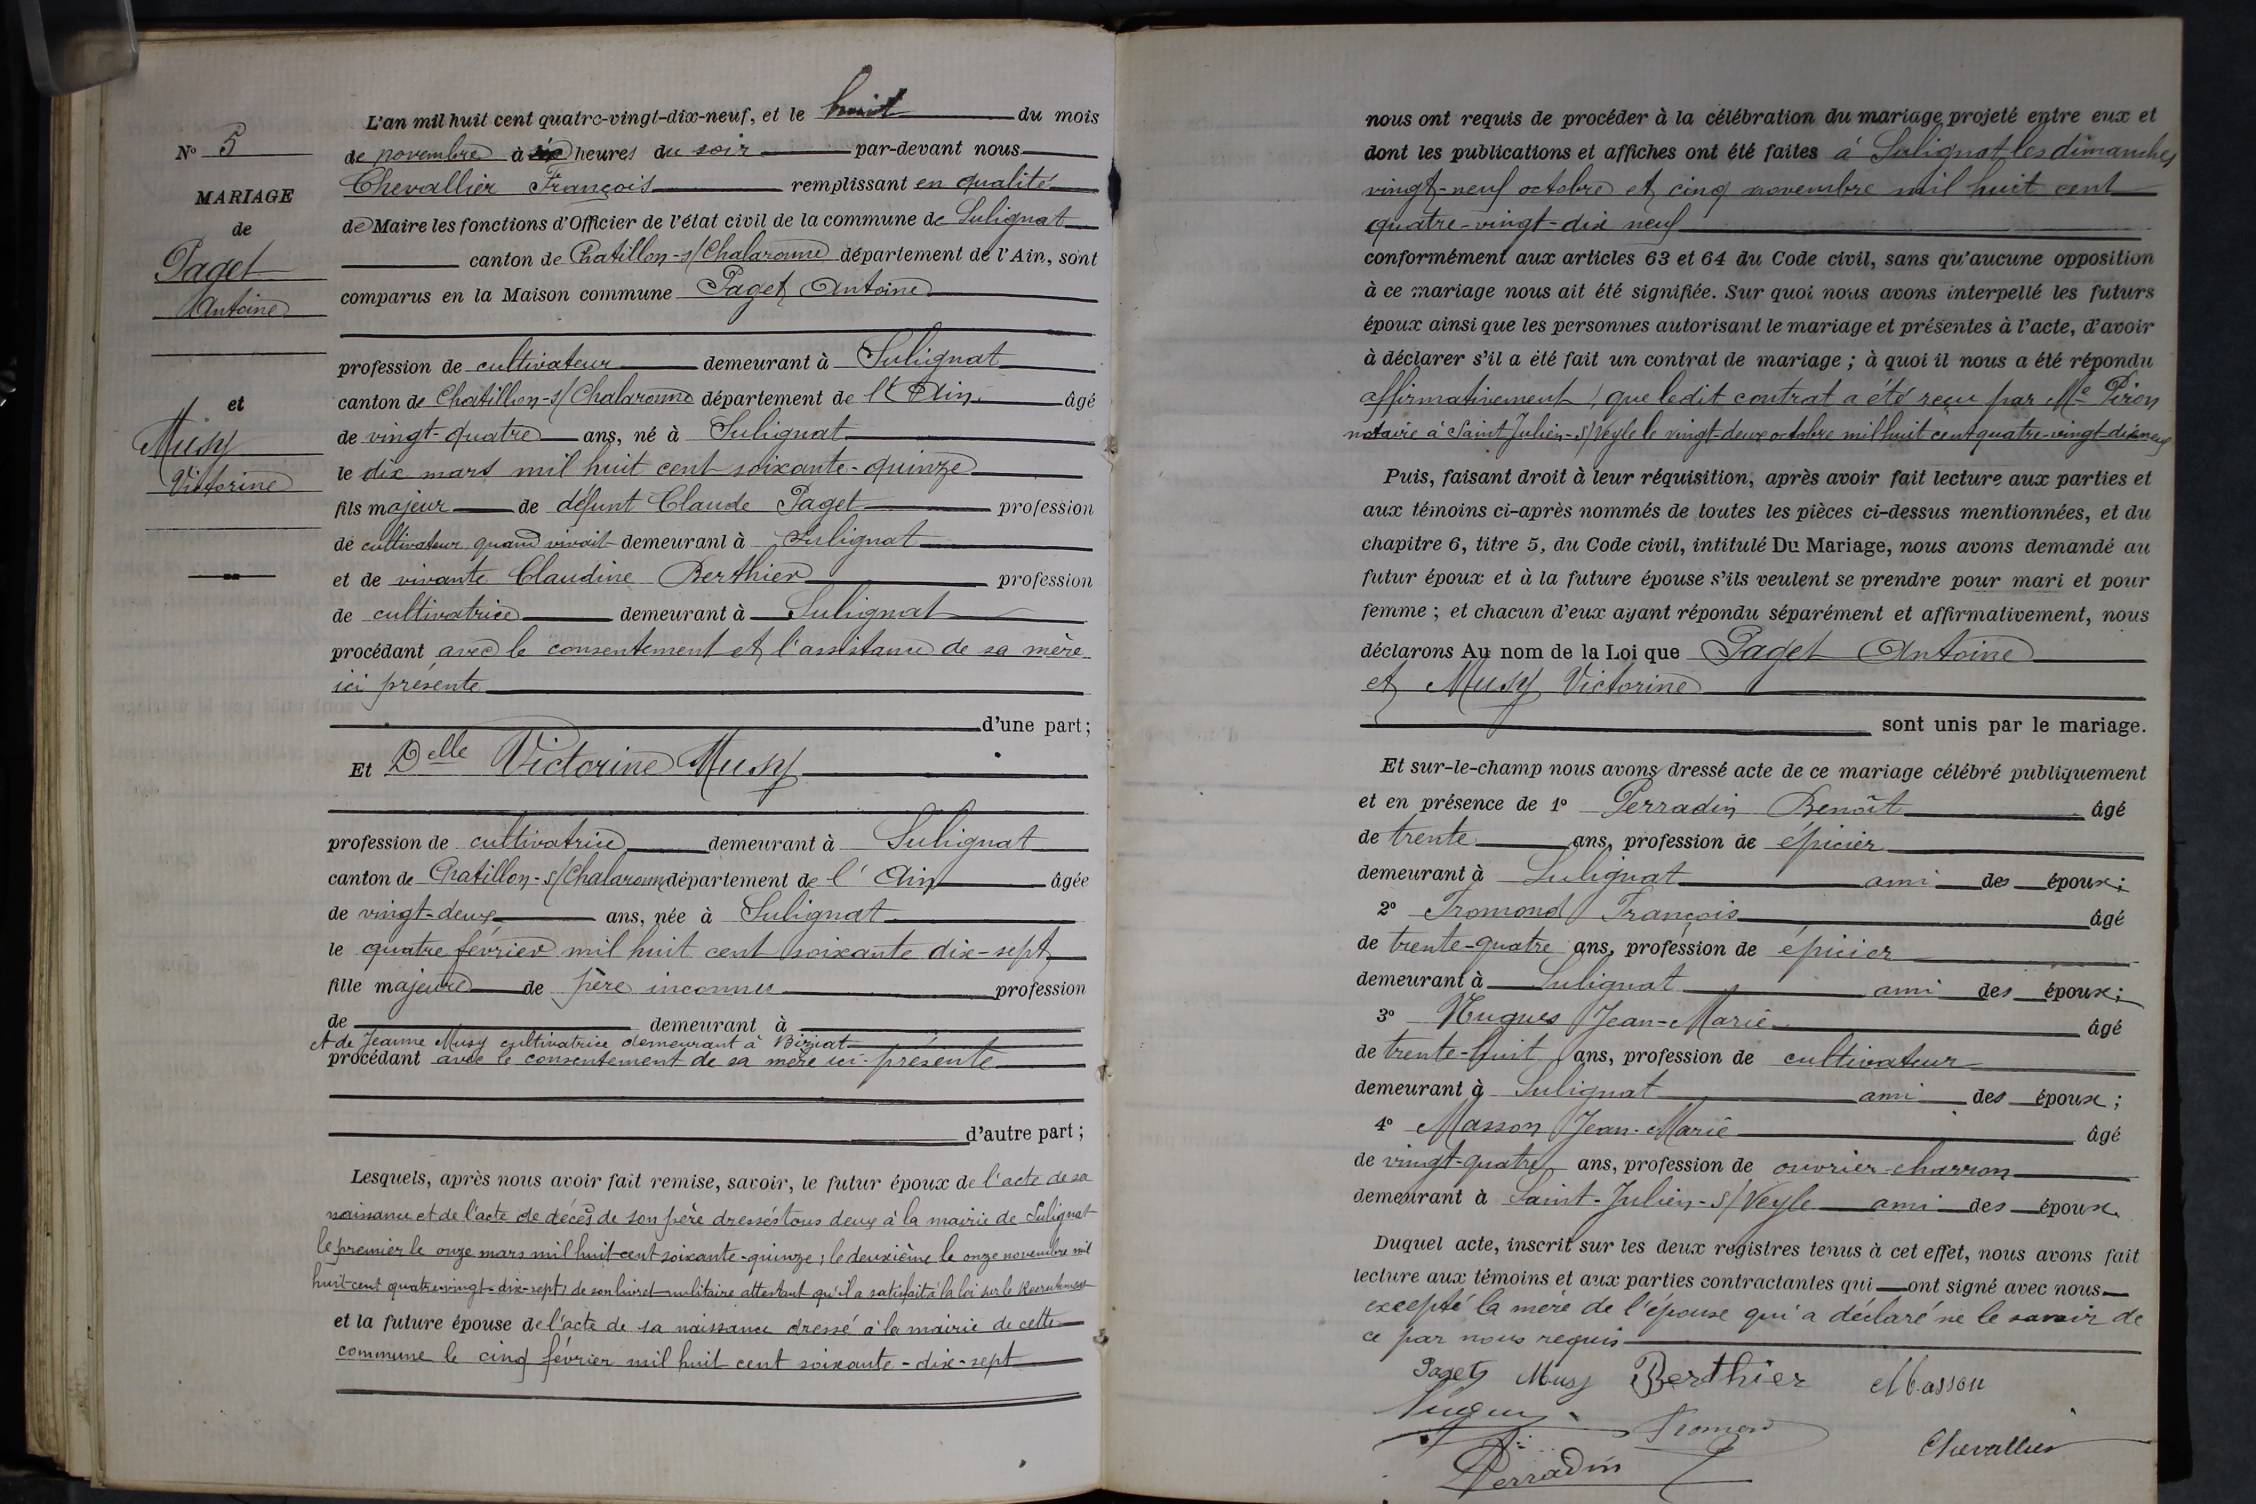 N° 5
MARIAGE
de
Paget
Antoine
et
Musy
Victorine
L'an mil huit cent quatre-vingt-dix-neuf, et le huit du mois
de novembre à six heures du soir par-devant nous
Chevallier François remplissant en qualité
de Maire les fonctions d'Officier de l'état civil de la commune de Sulignat
canton de Chatillon-s/Chalaronne département de l'Ain, sont
comparus en la Maison commune Paget Antoine
profession de cultivateur demeurant à Sulignat
canton de Chatillon-s/Chalaronne département de l'Ain âgé
de vingt-quatre ans, né à Sulignat
le dix mars mil huit cent soixante-quinze
fils majeur de défunt Claude Paget profession
de cultivateur quand vivait demeurant à Sulignat
et de vivante Claudine Berthier profession
de cultivatrice demeurant à Sulignat
procédant avec le consentement et l'assistance de sa mère
ici présente
d'une part;
Et Delle Victorine Musy
profession de cultivatrice demeurant à Sulignat
canton de Chatillon-s/Chalaronne département de l'Ain âgée
de vingt-deux ans, née à Sulignat
le quatre février mil huit cent soixante dix-sept
fille majeure de père inconnu profession
de demeurant à
et de Jeanne Musy cultivatrice demeurant à Biziat
procédant avec le consentement de sa mère ici présente
d'autre part;
Lesquels, après nous avoir fait remise, savoir, le futur époux de l'acte de sa
naissance et de l'acte de décès de son père dressés tous deux à la mairie de Sulignat
le premier le onze mars mil huit cent soixante-quinze; le deuxième le onze novembre mil
huit cent quatre-vingt-dix-sept, de son livret militaire attestant qu'il a satisfait à la loi sur le Recrutement
et la future épouse de l'acte de sa naissance dressé à la mairie de cette
commune le cinq février mil huit cent soixante-dix-sept
nous ont requis de procéder à la célébration du mariage projeté entre eux et
dont les publications et affiches ont été faites à Sulignat, les dimanches
vingt-neuf octobre et cinq novembre mil huit cent
quatre-vingt-dix neuf
conformément aux articles 63 et 64 du Code civil, sans qu'aucune opposition
à ce mariage nous ait été signifiée. Sur quoi nous avons interpellé les futurs
époux ainsi que les personnes autorisant le mariage et présentes à l'acte, d'avoir
à déclarer s'il a été fait un contrat de mariage; à quoi il nous a été répondu
affirmativement, que ledit contrat a été reçu par Me Piron
notaire à Saint Julien-s/Veyle le vingt-deux octobre mil huit cent quatre-vingt-dix neuf
Puis, faisant droit à leur réquisition, après avoir fait lecture aux parties et
aux témoins ci-après nommés de toutes les pièces ci-dessus mentionnées, et du
chapitre 6, titre 5, du Code civil, intitulé Du Mariage, nous avons demandé au
futur époux et à la future épouse s'ils veulent se prendre pour mari et pour
femme; et chacun d'eux ayant répondu séparément et affirmativement, nous
déclarons Au nom de la Loi que Paget Antoine
et Musy Victorine
sont unis par le mariage.
Et sur-le-champ nous avons dressé acte de ce mariage célébré publiquement
et en présence de 1° Perradin Benoît âgé
de trente ans, profession de épicier
demeurant à Sulignat ami des époux;
2° Tromond François âgé
de trente-quatre ans, profession de épicier
demeurant à Sulignat ami des époux;
3° Nugues Jean-Marie âgé
de trente-huit ans, profession de cultivateur
demeurant à Sulignat ami des époux;
4° Masson Jean-Marie âgé
de vingt-quatre ans, profession de ouvrier charron
demeurant à Saint-Julien-s/Veyle ami des époux.
Duquel acte, inscrit sur les deux registres tenus à cet effet, nous avons fait
lecture aux témoins et aux parties contractantes qui ont signé avec nous
excepté la mère de l'épouse qui a déclaré ne le savoir de
ce par nous requis
Paget Musy Berthier Masson
Nugues Tromond
Chevallier
Perradin